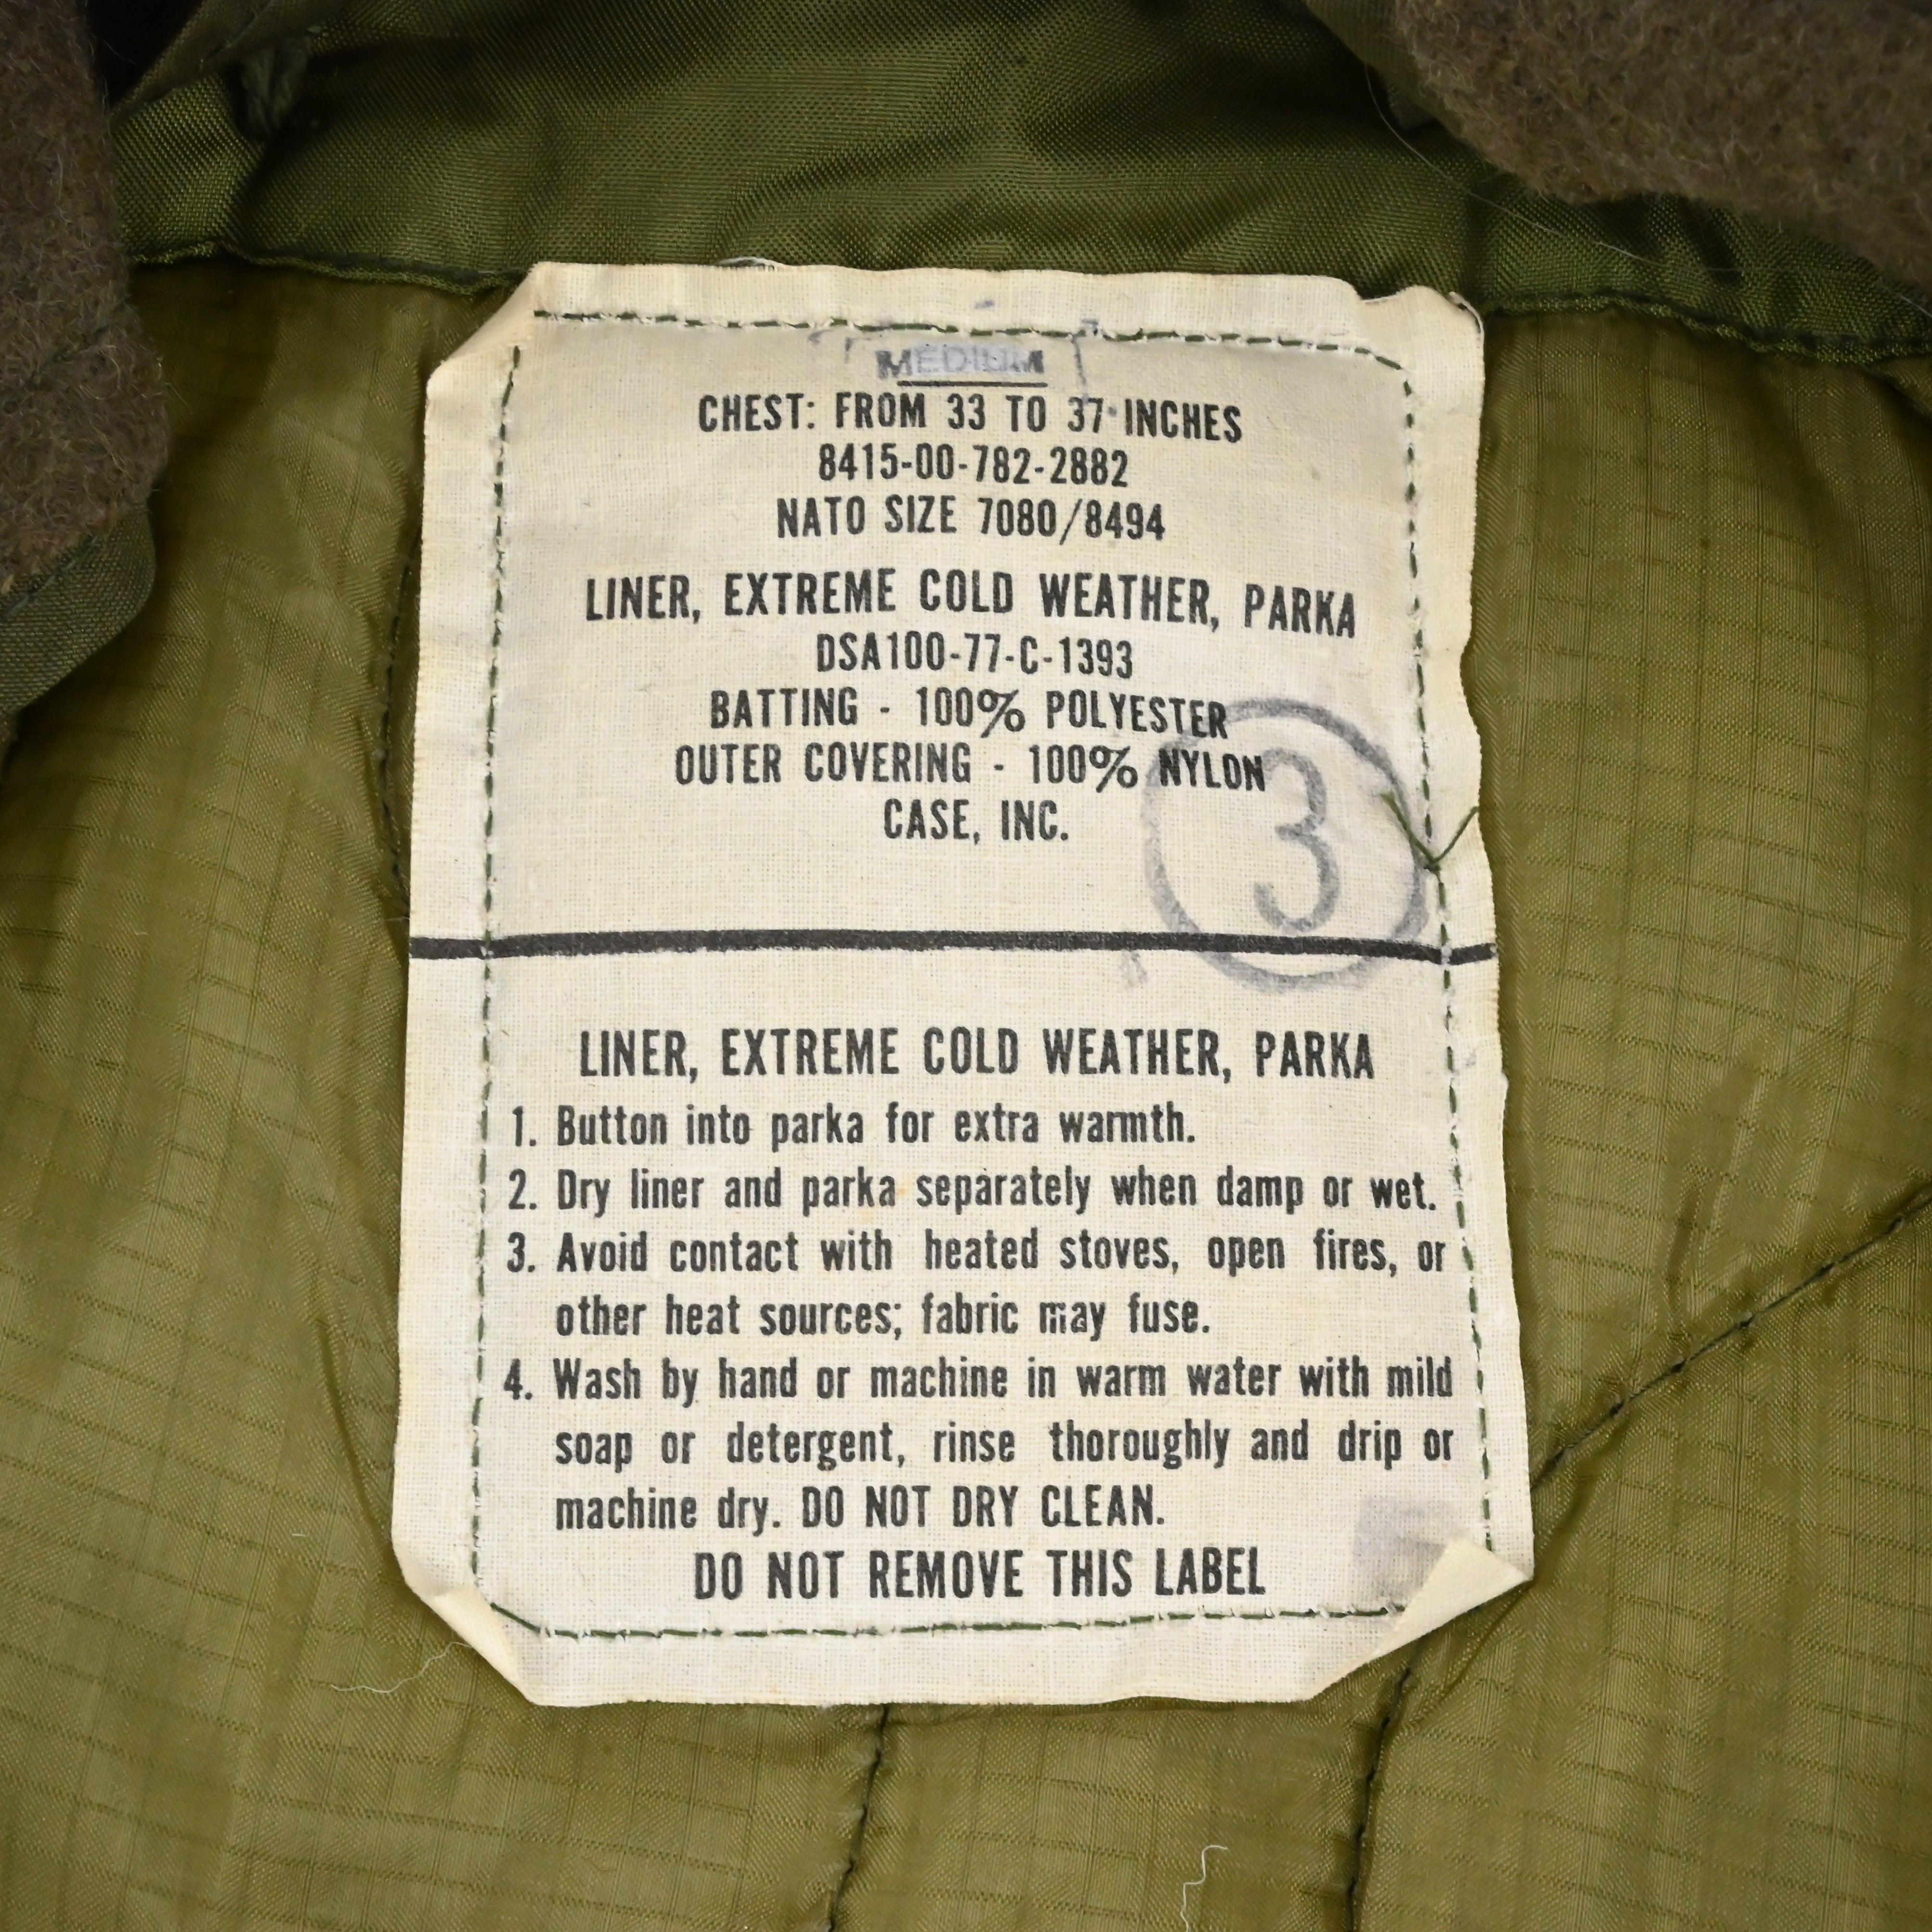 MEDIUM
CHEST: FROM 33 TO 37 INCHES
8415-00-782-2882
NATO SIZE 7080/8494
LINER, EXTREME COLD WEATHER, PARKA
DSA100-77-C-1393
BATTING - 100% POLYESTER
OUTER COVERING - 100% NYLON
CASE, INC.
3
LINER, EXTREME COLD WEATHER, PARKA
1. Button into parka for extra warmth.
2. Dry liner and parka separately when damp or wet.
3. Avoid contact with heated stoves, open fires, or
other heat sources; fabric may fuse.
4. Wash by hand or machine in warm water with mild
soap or detergent, rinse thoroughly and drip or
machine dry. DO NOT DRY CLEAN.
DO NOT REMOVE THIS LABEL